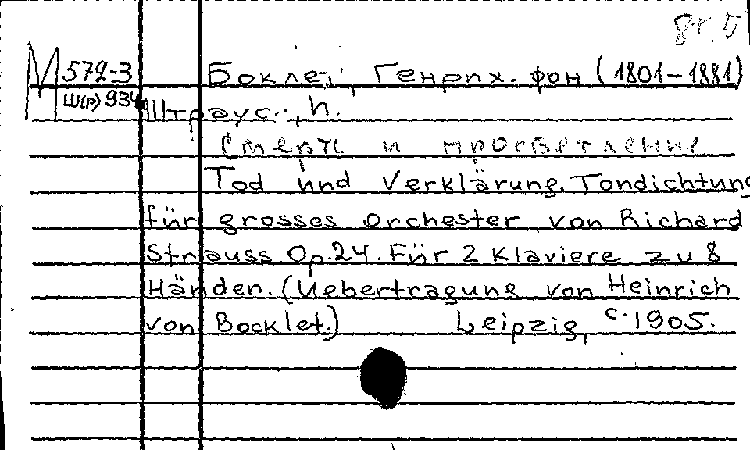 М 572-3 Боклет, Генрих. фон (1801-1881)
Ш(Р) 934 Штраус.,
Смерть и просветление
Tod und Verklärung. Tondichtung
für grosses Orchester von Richard
Strauss Op.24. Für 2 Klaviere zu 8
Händen. (Uebertragung von Heinrich
von Bocklet.) Leipzig, c.1905.